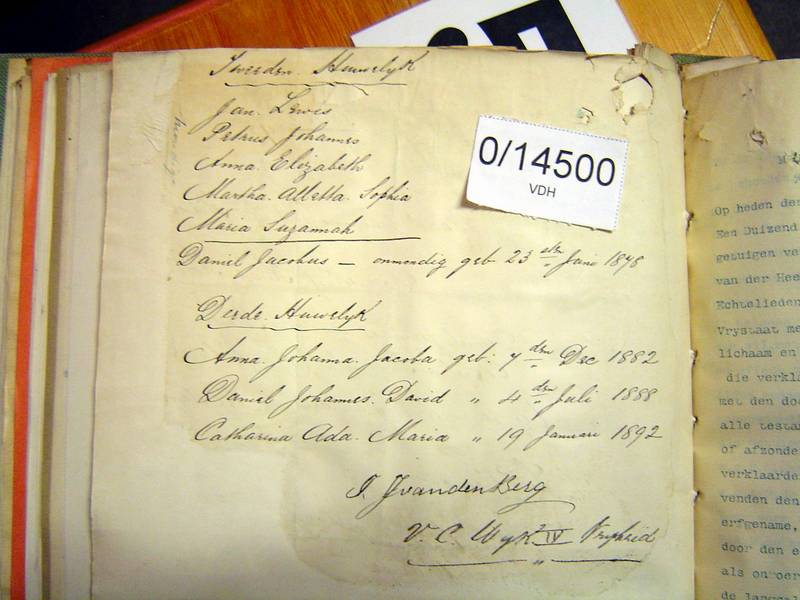 Tweeden Huwelyk
Jan Lewis
Petrus Johannes
Anna Elizabeth
Martha Alletta Sophia
Maria Suzannah
Daniel Jacobus — onmondig geb 23 sten Juni 1878
Derde Huwelyk
Anna Johanna Jacoba geb: 7 den Dec 1882
Daniel Johannes David " 4 den Juli 1888
Catharina Ada Maria " 19 Januari 1892
J van den Berg
V. C. Wyk IV Vryheid
0/14500
VDH
Op heden de
Een Duizend
getuigen ve
van der Hee
Echtelieden
Vrystaat me
lichaam en
die verkla
met den do
alle testam
of afzonde
verklaarde
venden den
erfgename,
door den e
als onroer
de langst